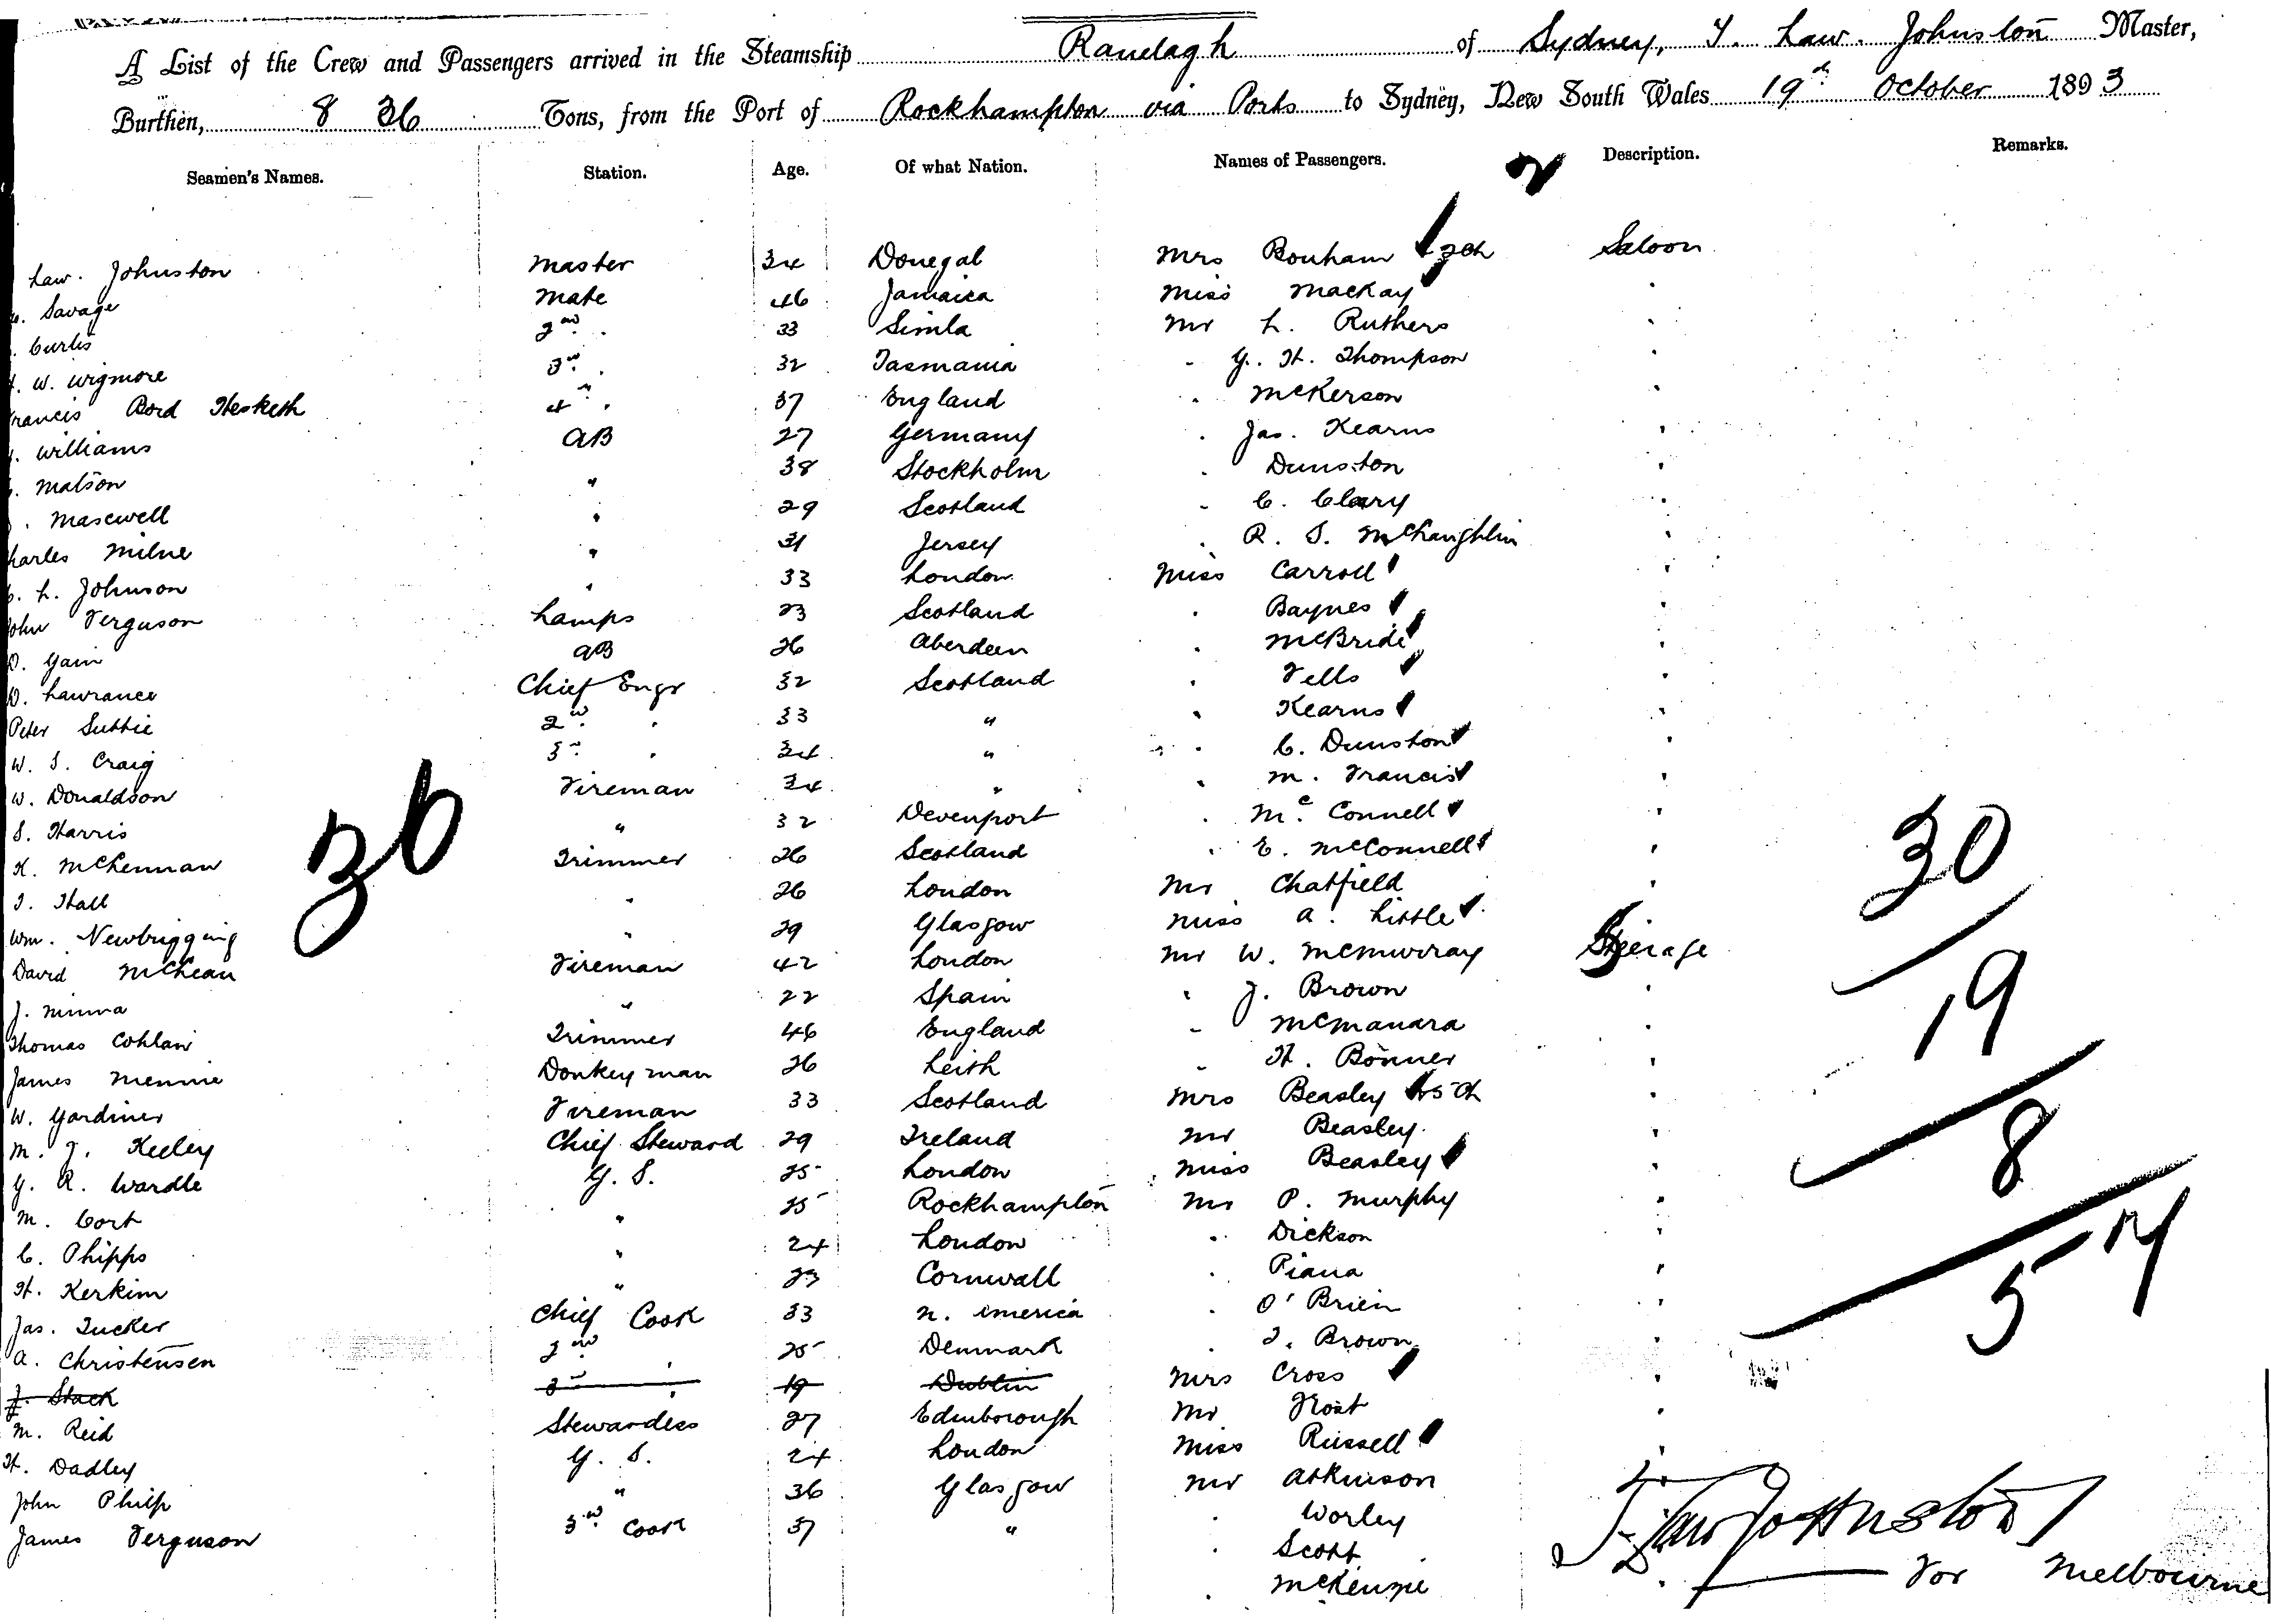 A List of the Crew and Passengers arrived in the Steamship Ranelagh of Sydney, T. Law. Johnston Master,
Burthen, 836 Tons, from the Port of Rockhampton via Ports to Sydney, New South Wales 19th October 1893
Seamen's Names. Station. Age. Of what Nation. Names of Passengers. Description. Remarks.
Law. Johnston Master 34 Donegal Mrs Bonham + 2ch Saloon
Savage Mate 46 Jamaica Miss Mackay
Curtis 2nd " 33 Simla Mr L. Ruthers
W. Wigmore 3rd " 32 Tasmania " G. H. Thompson
rancis Bord Hesketh 4th " 37 England " McKerson
Williams AB 27 Germany " Jas. Kearns
Matson " 38 Stockholm " Dunston
Maxwell " 29 Scotland " C. Clary
harles Milne " 31 Jersey " R. S. McLaughlin
L. Johnson " 33 London Miss Carroll
John Ferguson Lamps 23 Scotland " Baynes
D. Gain AB 26 Aberdeen " McBride
D. Lawrance Chief Engr 32 Scotland " Fells
Peter Suttie 2nd " 33 " " Kearns
W. S. Craig 3rd " 34 " " C. Dunston
W. Donaldson Fireman 34 " " M. Francis
S. Harris " 32 Devenport " Mc Connell
K. McLennan Trimmer 26 Scotland " E. McConnell
T. Hall " 26 London Mr Chatfield
Wm. Newbigging " 29 Glasgow Miss A. Little
David McLean Fireman 42 London Mr W. McMurray Steerage
J. Ninna " 22 Spain " J. Brown
Thomas Cohlan Trimmer 46 England " McManara
James Mennie Donkeyman 26 Leith " H. Bonner
W. Gardiner Fireman 33 Scotland Mrs Beasley + 5 Ch
M. J. Keeley Chief Steward 29 Ireland Mr Beasley
G. R. Wardle G. S. 25 London Miss Beasley
M. Cort " 25 Rockhampton Mr P. Murphy
C. Phipps " 24 London " Dickson
H. Kerkin " 23 Cornwall " Piana
Jas. Tucker Chief Cook 33 N. America " O'Brien
A. Christensen 2nd " 25 Denmark " T. Brown
J. Stack 3rd " 19 Dublin Mrs Cross
M. Reid Stewardess 27 Edinborough Mr Frost
H. Dadley G. S. 24 London Miss Russell
John Philp " 36 Glasgow Mr Atkinson
James Ferguson 3rd Cook 37 " " Worley
" Scott
" McKenzie
36
30
19
8
57
T. Law Johnston
For Melbourne